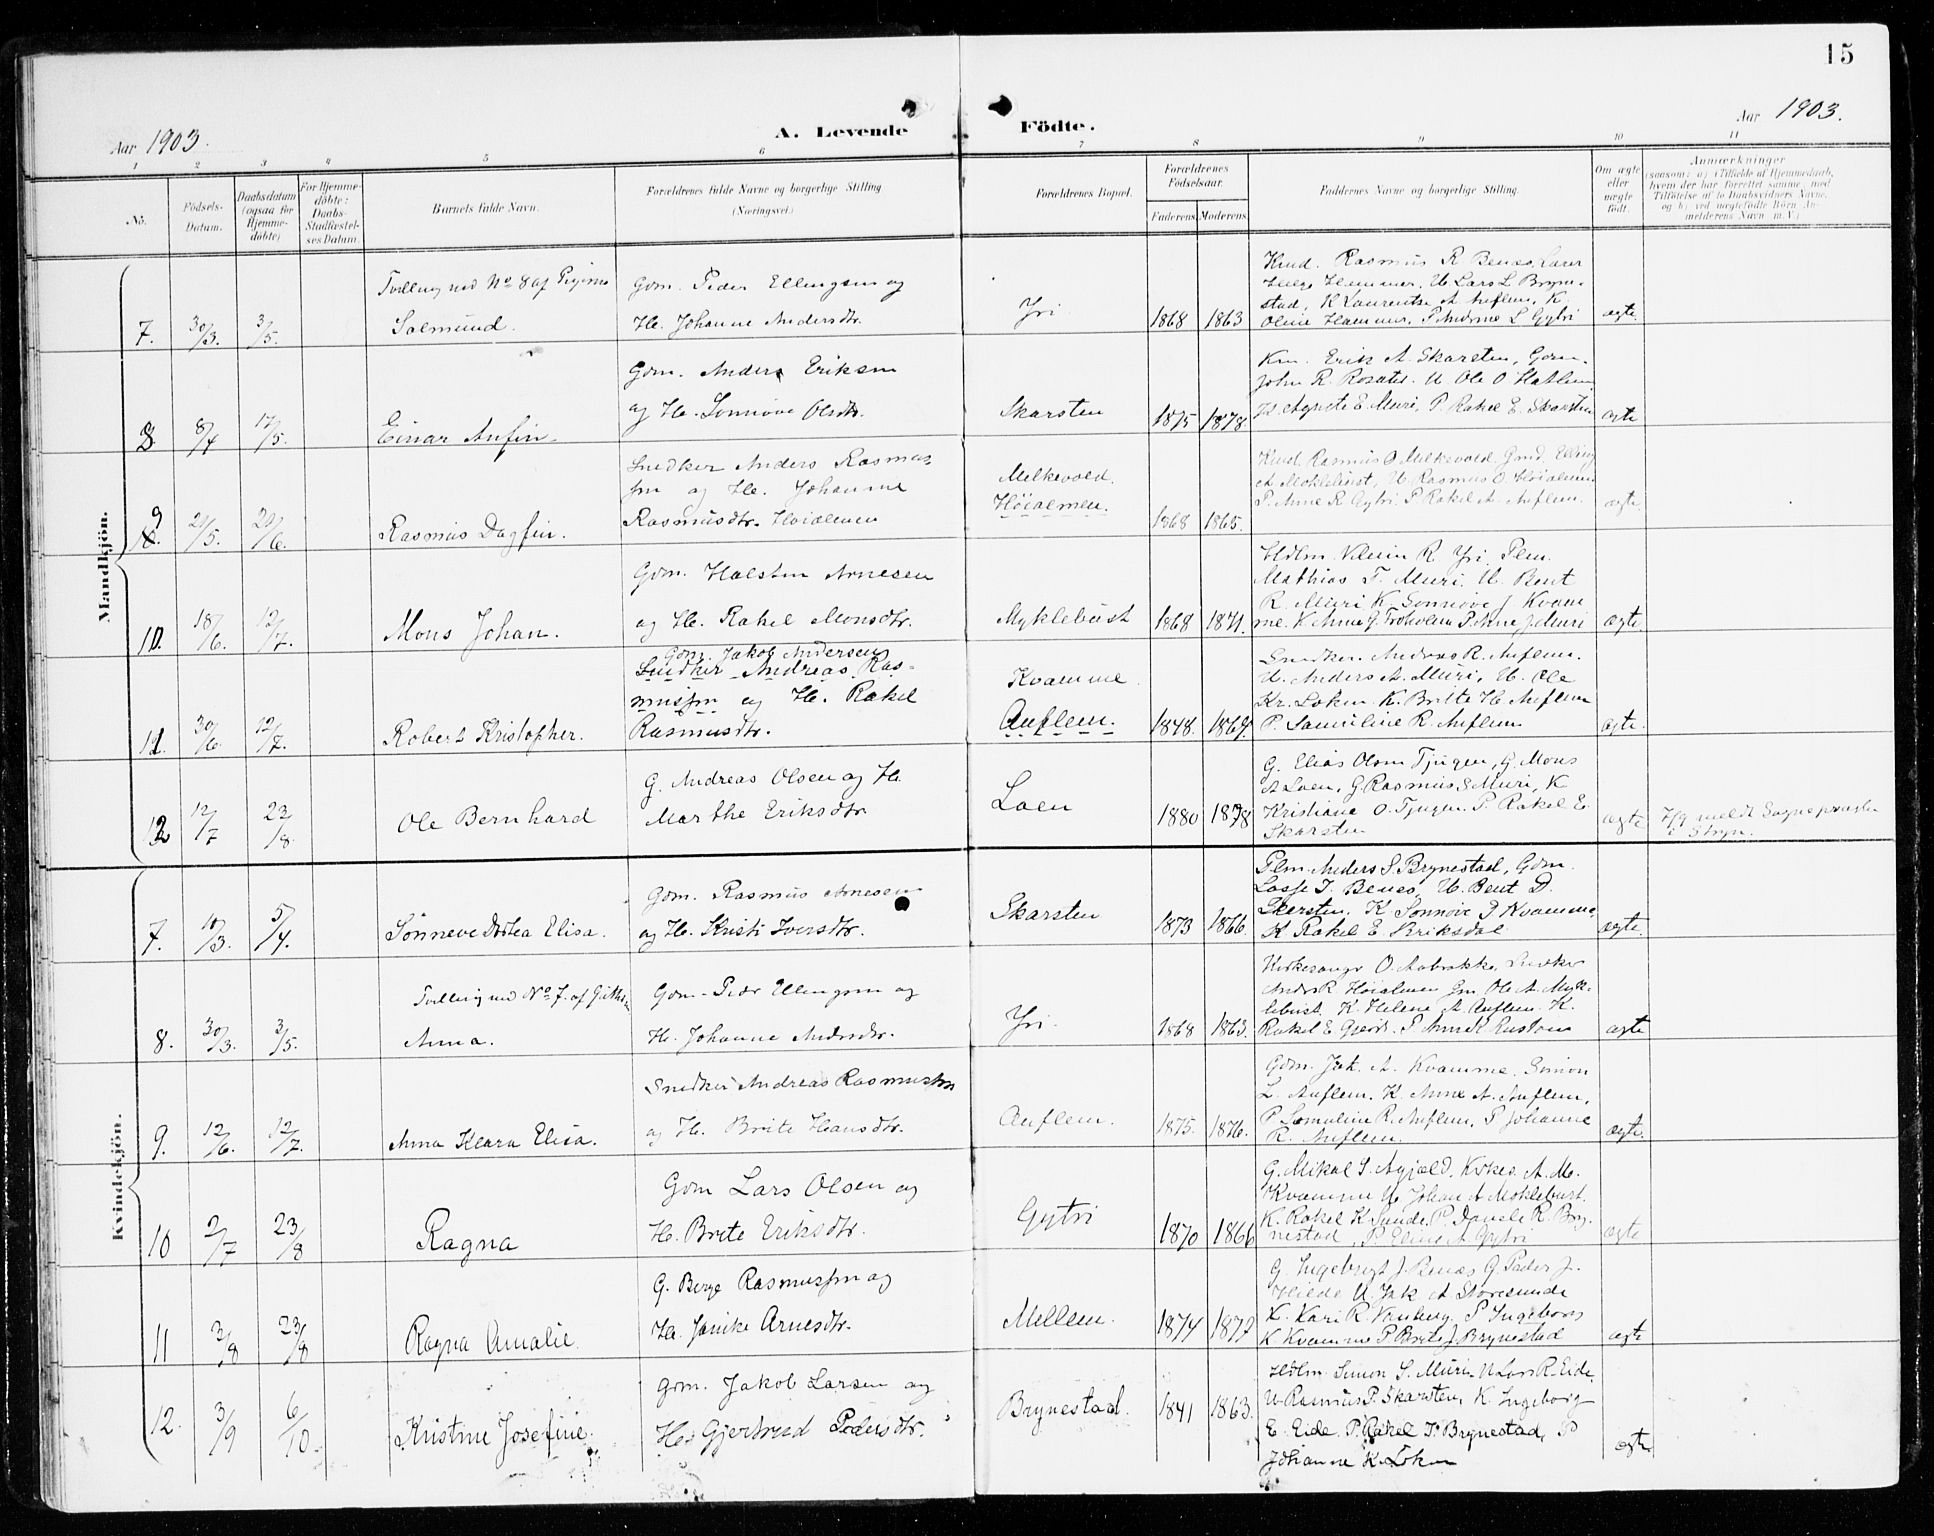 15
Aar 1903.
A. Levende Födte.
Aar 1903.
1 2 3 4 5 6 7 8 9 10 11
No.
Födsels-Datum.
Daabsdatum (ogsaa for Hjemme-döbte)
For Hjemme-döbte: Daabs-Stadfæstel-ses Datum.
Barnets fulde Navn.
Forældrenes fulde Navne og borgerlige Stilling (Næringsvei.)
Forældrenes Bopæl.
Forældrenes Födselsaar.
Faderens. Moderens.
Faddernes Navne og borgerlige Stilling.
Om ægte eller uægte födt.
Anmærkninger
(saasom: a) i Tilfælde af Hjemmedaab, hvem der har forrettet samme, med Tilföielse af to Daabsvidners Navne, og b) ved uægtefödte Börn An-melderens Navn m. V.)
Mandkjön.
7. 30/3. 3/5.
Tvilling med No 8 af Pigerne
Salmund.
Gdm. Peder Ellingsen og
H. Johanne Andersdtr.
Yri
1868 1863
Rasmus R Benæs
Hammer, U Lars L Bryne-
stad, K Laurentse A Auflem, K.
Oline Hammer, P Andrine L Gytri
ægte.
8 8/4 17/5.
Einar Anfin.
Gdm. Anders Eriksen
og H. Sönnöve Olsdtr.
Skarsten
1875 1878
Erik A. Skarsten, Gdm.
John R. U Ole O
E Muri, P. Rakel E. Skarsten
ægte
9 21/5. 20/6.
Rasmus Dagfin.
Snedker Anders Rasmus-
sen og H. Johanne
Rasmusdtr. Höialmen
Melkevold.
Höialmen.
1868 1865.
Rasmus O Melkevold Elling
A Moklebust, U. Rasmus O. Höialmen
P. Anne R Gytri P Rakel A. Auflem.
ægte.
10. 18/6. 12/7.
Mons Johan.
Gdm. Halsten Arnesen
og H. Rakel Monsdtr.
Myklebust
1868 1871.
R. Yri, Plm.
Mathias T. Muri, U. Bent
R. Muri K. Sönnöve J. Kvam-
me. K Anna G. P. Anne J Muri
ægte.
11. 30/6. 12/7.
Robert Kristopher.
Gdm. Jakob Andersen
Snedker Andreas Ras-
mussen og H. Rakel
Rasmusdtr.
Kvamme
Auflem.
1848. 1869.
Snedker Andreas R. Auflem.
U. Anders A. Muri, U. Ole
Kr. Loken K. Brite H. Auflem
P. Samuline R. Auflem
ægte.
12 12/7 23/8.
Ole Bernhard
G. Andreas Olsen og H.
Marthe Eriksdtr.
Loen
1880 1878
G. Elias Olsen Tjugen, G. Mons
A Loen, G. Rasmus S Muri, K
Kristiane O. Tjugen. P. Rakel E.
Skarsten
ægte
7/9 meldt Sognepresten
i Stryn.
Kvindekjön.
7. 10/3. 5/4.
Sönneve Dortea Elisa.
Gdm. Rasmus Arnesen
og H. Kristi Iversdtr.
Skarsten
1873 1866.
Plm Anders S. Brynestad, Gdm.
Lasse J. Benes, U. Bent D.
Skersten. K Sönnöve P Kvamme
K Rakel E Briksdal
ægte.
8. 30/3. 3/5.
Tvilling med No 7. af Guttene
Anna.
Gdm. Peder Ellingsen og
H. Johanne Andersdtr.
Yri.
1868 1863.
Kirkesangr O. Aabrekke, Snedker
Anders R Höialmen Gm Ole A. Myk-
lebust, K Helene A Auflem. K.
Rakel E Gjerde. P Anne K
ægte
9. 12/6. 12/7.
Anna Klara Elisa.
Snedker Andreas Rasmussen
og H. Brite Hansdtr.
Auflem.
1875. 1876.
Gdm. Jak. A. Kvamme, Simon
L. Auflem. K. Anne A. Auflem,
P Samuline R. Auflem, P Johanne
R. Auflem.
ægte.
10 2/7 23/8
Ragna
Gdm Lars Olsen og
H. Brite Eriksdtr.
Gytri
1870 1866
G. Mikal S. A. M.
Kvamme U Johan A Moklebust.
K. Rakel K Sunde. P. R. Bry-
nestad, P. A Gytri
ægte
11 2/8 23/8
Ragna Amalie.
G. Berge Rasmussen og
H. Jenike Arnesdtr.
Mellem.
1874 1877
G Ingebrigt J. Benæs G. Peder J.
Hilde U. Jak A Storesunde
K. Kari R. P Ingeborg
K Kvamme P Brite J Brynestad
ægte
12. 3/9 6/10.
Kristine Josefine.
Gdm. Jakob Larsen og
H. Gjertrud Pedersdtr.
Brynestad.
1841 1863.
Simon S. Muri U Lars R. Eide,
U Rasmus P. Skarsten, K. Ingeborg
E. Eide. P. Rakel T. Brynestad, P
Johanne K. Loken
ægte